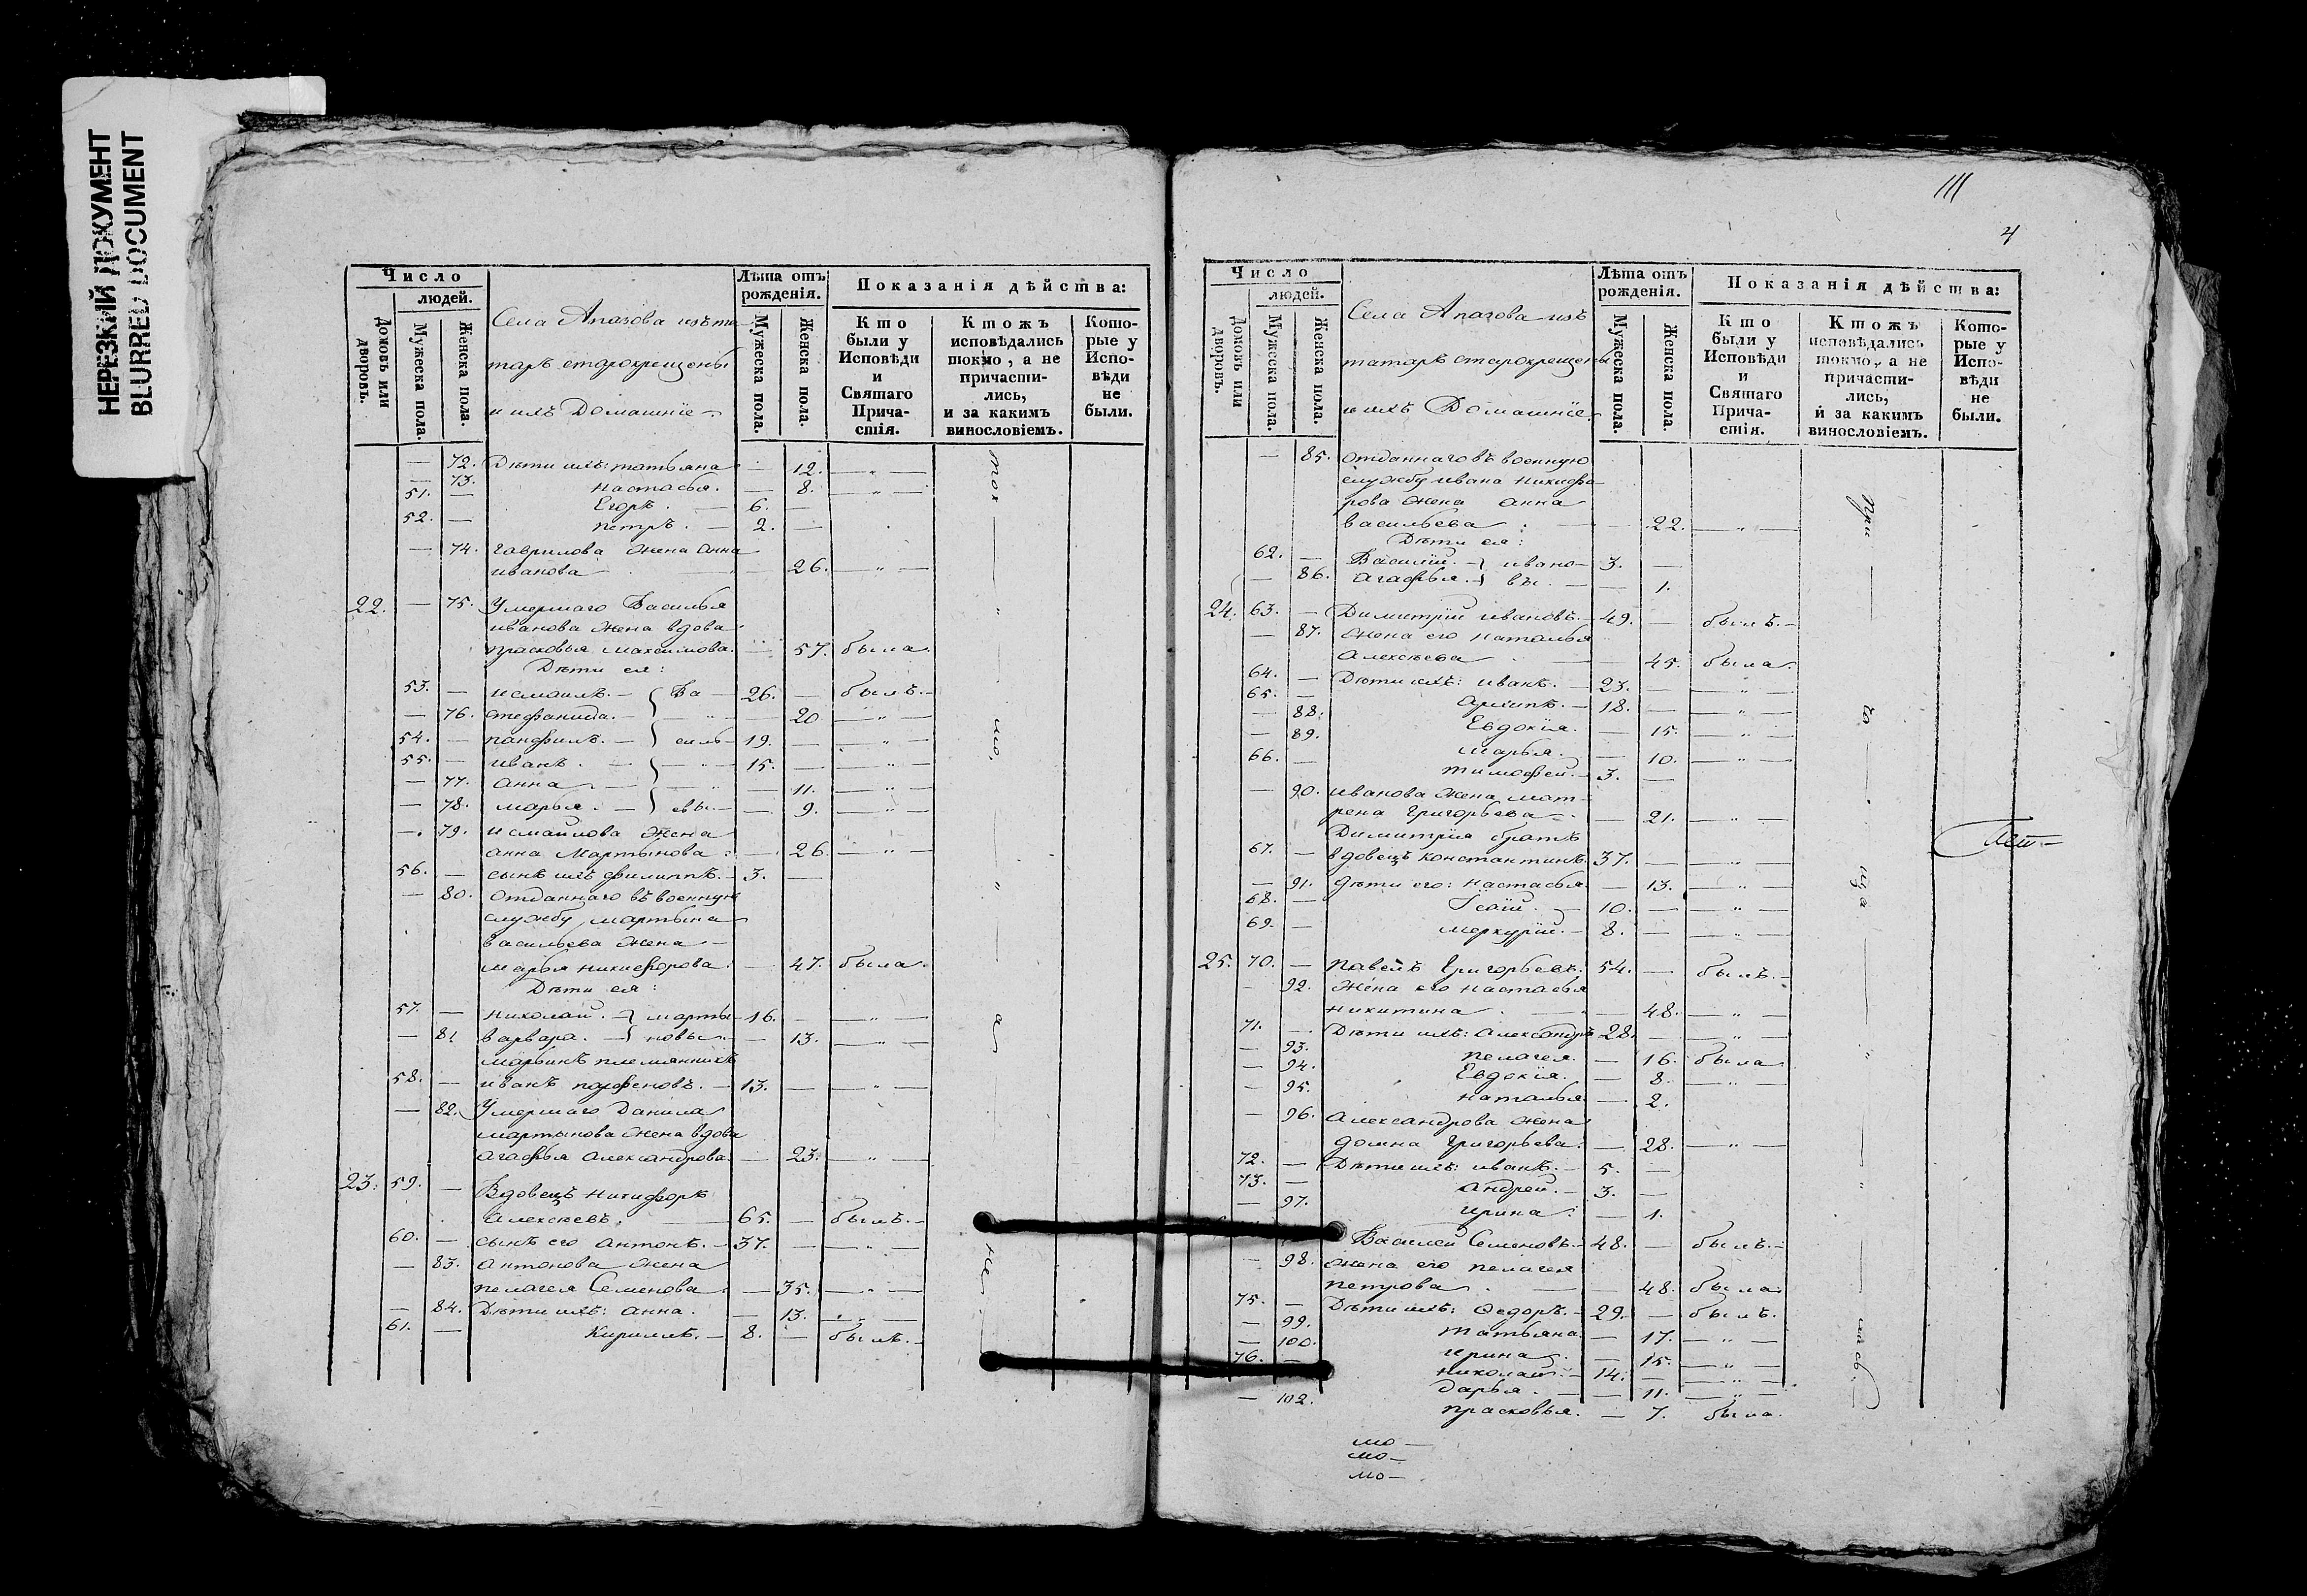 НЕРЕЗКИЙ ДОКУМЕНТ
BLURRED DOCUMENT
Число
людей.
Домовъ или дворовъ.
Мужеска пола.
Женска пола.
Села Апазова изъ та-
таръ старокрещены
и ихъ Домашніе
Лѣта отъ рожденія.
Мужеска пола.
Женска пола.
Показанія дѣйства:
Кто были у Исповѣди и Святаго Причастія.
Ктожъ исповѣдались токмо, а не причастились, и за какимъ винословіемъ.
Которые у Исповѣди не были.
— 72. Дѣти ихъ: татьяна — 12. — „ —
— 73. настасья. — 8. — „ —
51. — Егоръ. — 6. —
52. — петръ. — 2. —
— 74. гаврилова жена анна
иванова — 26. — „ —
22. — 75. Умершаго Василья
иванова жена вдова
прасковья максимова. — 57. была.
Дѣти ея:
53. — исмаилъ. — Ва — 26. — былъ. —
— 76. стефанида. — „ — 20 — „ —
54. — панфилъ. — силь — 19. — — „ —
55. — иванъ. — „ — 15. — — „ —
— 77. анна — „ — 11. — „ —
— 78. марья. — евы. — 9. — „ —
— 79. исмаилова жена
анна Мартынова. — 26 — „ —
56. — сынъ ихъ филиппъ. — 3. —
— 80. отданнаго въ военную
службу мартына
васильева жена —
марья никифорова. — 47. была.
Дѣти ея:
57. — николай. — марты — 16. — — „ —
— 81 варвара. — новы. — 13. — „ —
марьинъ племянникъ
58. — иванъ парфеновъ. — 13. — — „ —
— 82. Умершаго Данила
мартынова жена вдова
агафья александрова. — 23. — „ —
23. 59. — Вдовецъ никифоръ
алексѣевъ. — 65. — былъ. —
60. — сынъ его антонъ. — 37. — — „ —
— 83. антонова жена
пелагея Семенова. — 35. — „ —
— 84. Дѣти ихъ: анна. — 13. — „ —
61. — Кириллъ. — 8. — былъ. —
111
4
Число
людей.
Домовъ или дворовъ.
Мужеска пола.
Женска пола.
Села Апазова изъ
татаръ старокрещены
и ихъ Домашніе.
Лѣта отъ рожденія.
Мужеска пола.
Женска пола.
Показанія дѣйства:
Кто были у Исповѣди и Святаго Причастія.
Ктожъ исповѣдались токмо, а не причастились, и за какимъ винословіемъ.
Которые у Исповѣди не были.
— 85. отданнаго въ военную
службу ивана никифо-
рова жена анна
васильева — 22. — „ —
Дѣти ея:
62. — Василій. — ивано — 3. —
— 86. агафья. — вы. — 1.
24. 63. — Димитрій ивановъ. — 49. — былъ. —
— 87. жена его наталья
алексѣева — 45. была.
64. — Дѣти ихъ: иванъ. — 23. — — „ —
65. — архипъ. — 18. — — „ —
— 88. Евдокія. — 15. — „ —
— 89. марья. — 10. — „ —
66. — тимофей. — 3. —
— 90. иванова жена мат-
рена григорьева. — 21. — „ —
Димитрія братъ
67. — вдовецъ константинъ. 37. — — „ —
— 91. дѣти его: настасья. — 13. — „ —
68. — Ісаій. — 10. — — „ —
69. — меркурій. — 8. — — „ —
25. 70. — павелъ григорьевъ. 54. — былъ. —
— 92. жена его настасья
никитина — 48. — „ —
71. — Дѣти ихъ: александръ 28. — — „ —
— 93. пелагея. — 16. была
— 94. Евдокія. — 8. — „ —
— 95. наталья — 2.
— 96. александрова жена
домна григорьева. — 28. — „ —
72. — Дѣти ихъ: иванъ. — 5. —
73. — андрей. — 3. —
— 97. ирина. — 1.
Василей Семеновъ. — 48. — былъ. —
— 98. жена его пелагея
петрова — 48. была.
75. — Дѣти ихъ: Ѳедоръ. — 29. — былъ.
— 99. татьяна. — 17. — „ —
— 100. ирина. — 15. — „ —
76. — николай. — 14. — — „ —
дарья. — 11. — „ —
— 102. прасковья. — 7. была.
мо —
мо —
мо —